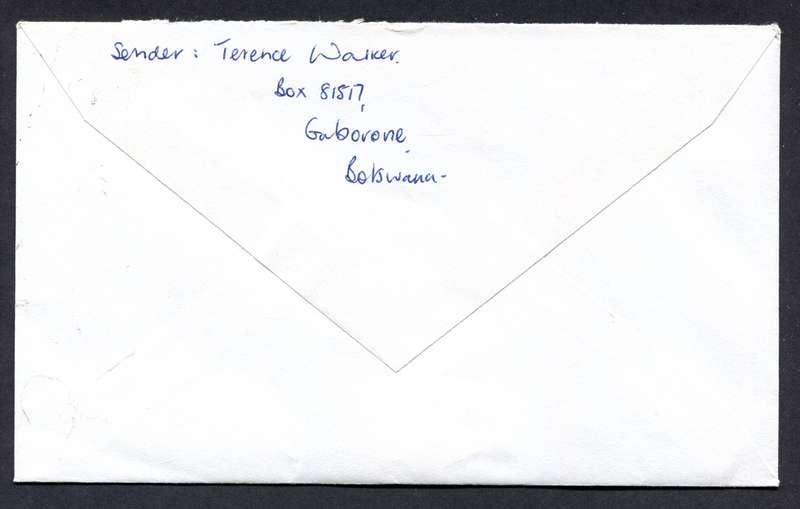 Sender: Terence Walker.
Box 81517,
Gaborone,
Botswana-